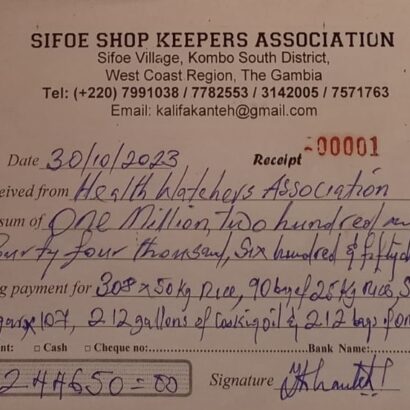 SIFOE SHOP KEEPERS ASSOCIATION
Sifoe Village, Kombo South District,
West Coast Region, The Gambia
Tel: (+220) 7991038 / 7782553 / 3142005 / 7571763
Email: kalifakanteh@gmail.com
Date 30/10/2023 Receipt -00001
ceived from Health Watchers Association
sum of One Million, two hundred
four thousand, Six hundred & fifty
g payment for 308 x 50 kg Rice, 90 bag of 25 kg Rice, S
gar x 107, 212 gallons of Cooking oil & 212 bags of on
nt: □ Cash □ Cheque no: Bank Name:
244650=00 Signature